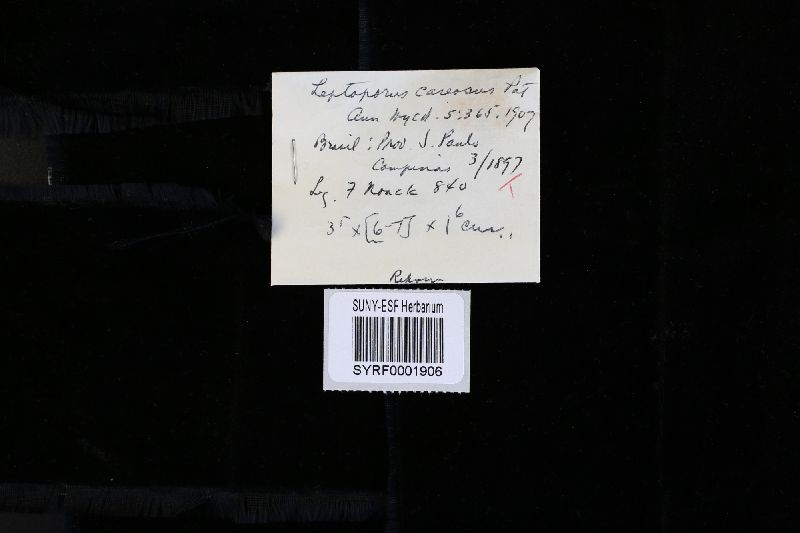 Leptoporus careosus Pat
Ann Mycol. 5:365. 1907
Brasil: Prov. S. Paulo
Campinas 3/1897
Leg. F Noack 840
T
35 × [6-7] × 1⁶ cm.
SUNY-ESF Herbarium
SYRF0001906